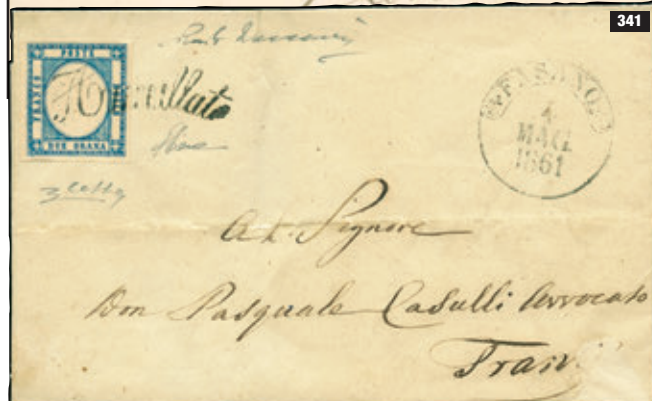 341
POSTE
FRANCO
DUE GRANA
Annullato
FASANO
4
MAG.
1861
Signore
Don Pasquale Casulli Avvocato
Trani